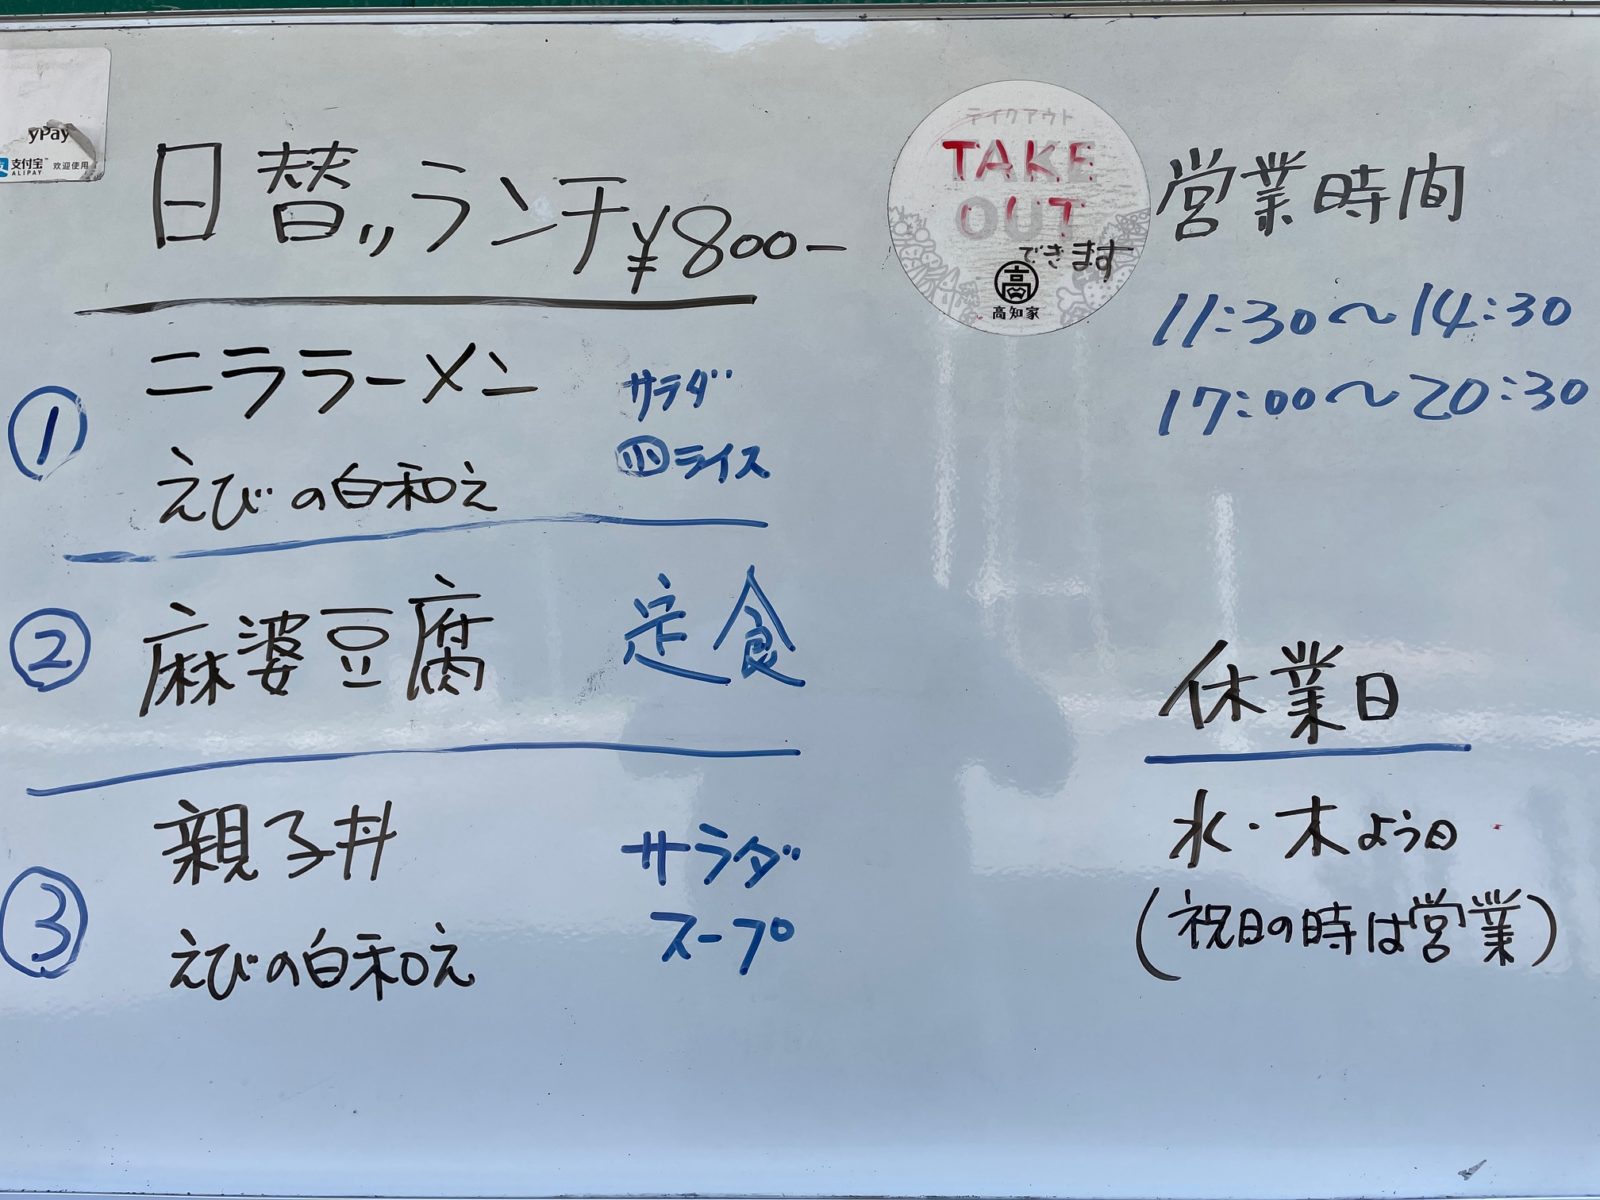 yPay
支付宝™ 欢迎使用
ALIPAY
日替り ランチ ¥800-
① ニララーメン サラダ
えびの白和え ㊥ライス
② 麻婆豆腐 定食
③ 親子丼 サラダ
えびの白和え スープ
テイクアウト
TAKE
OUT
できます
高
高知家
営業時間
11:30〜14:30
17:00〜20:30
休業日
水・木よう日
(祝日の時は営業)